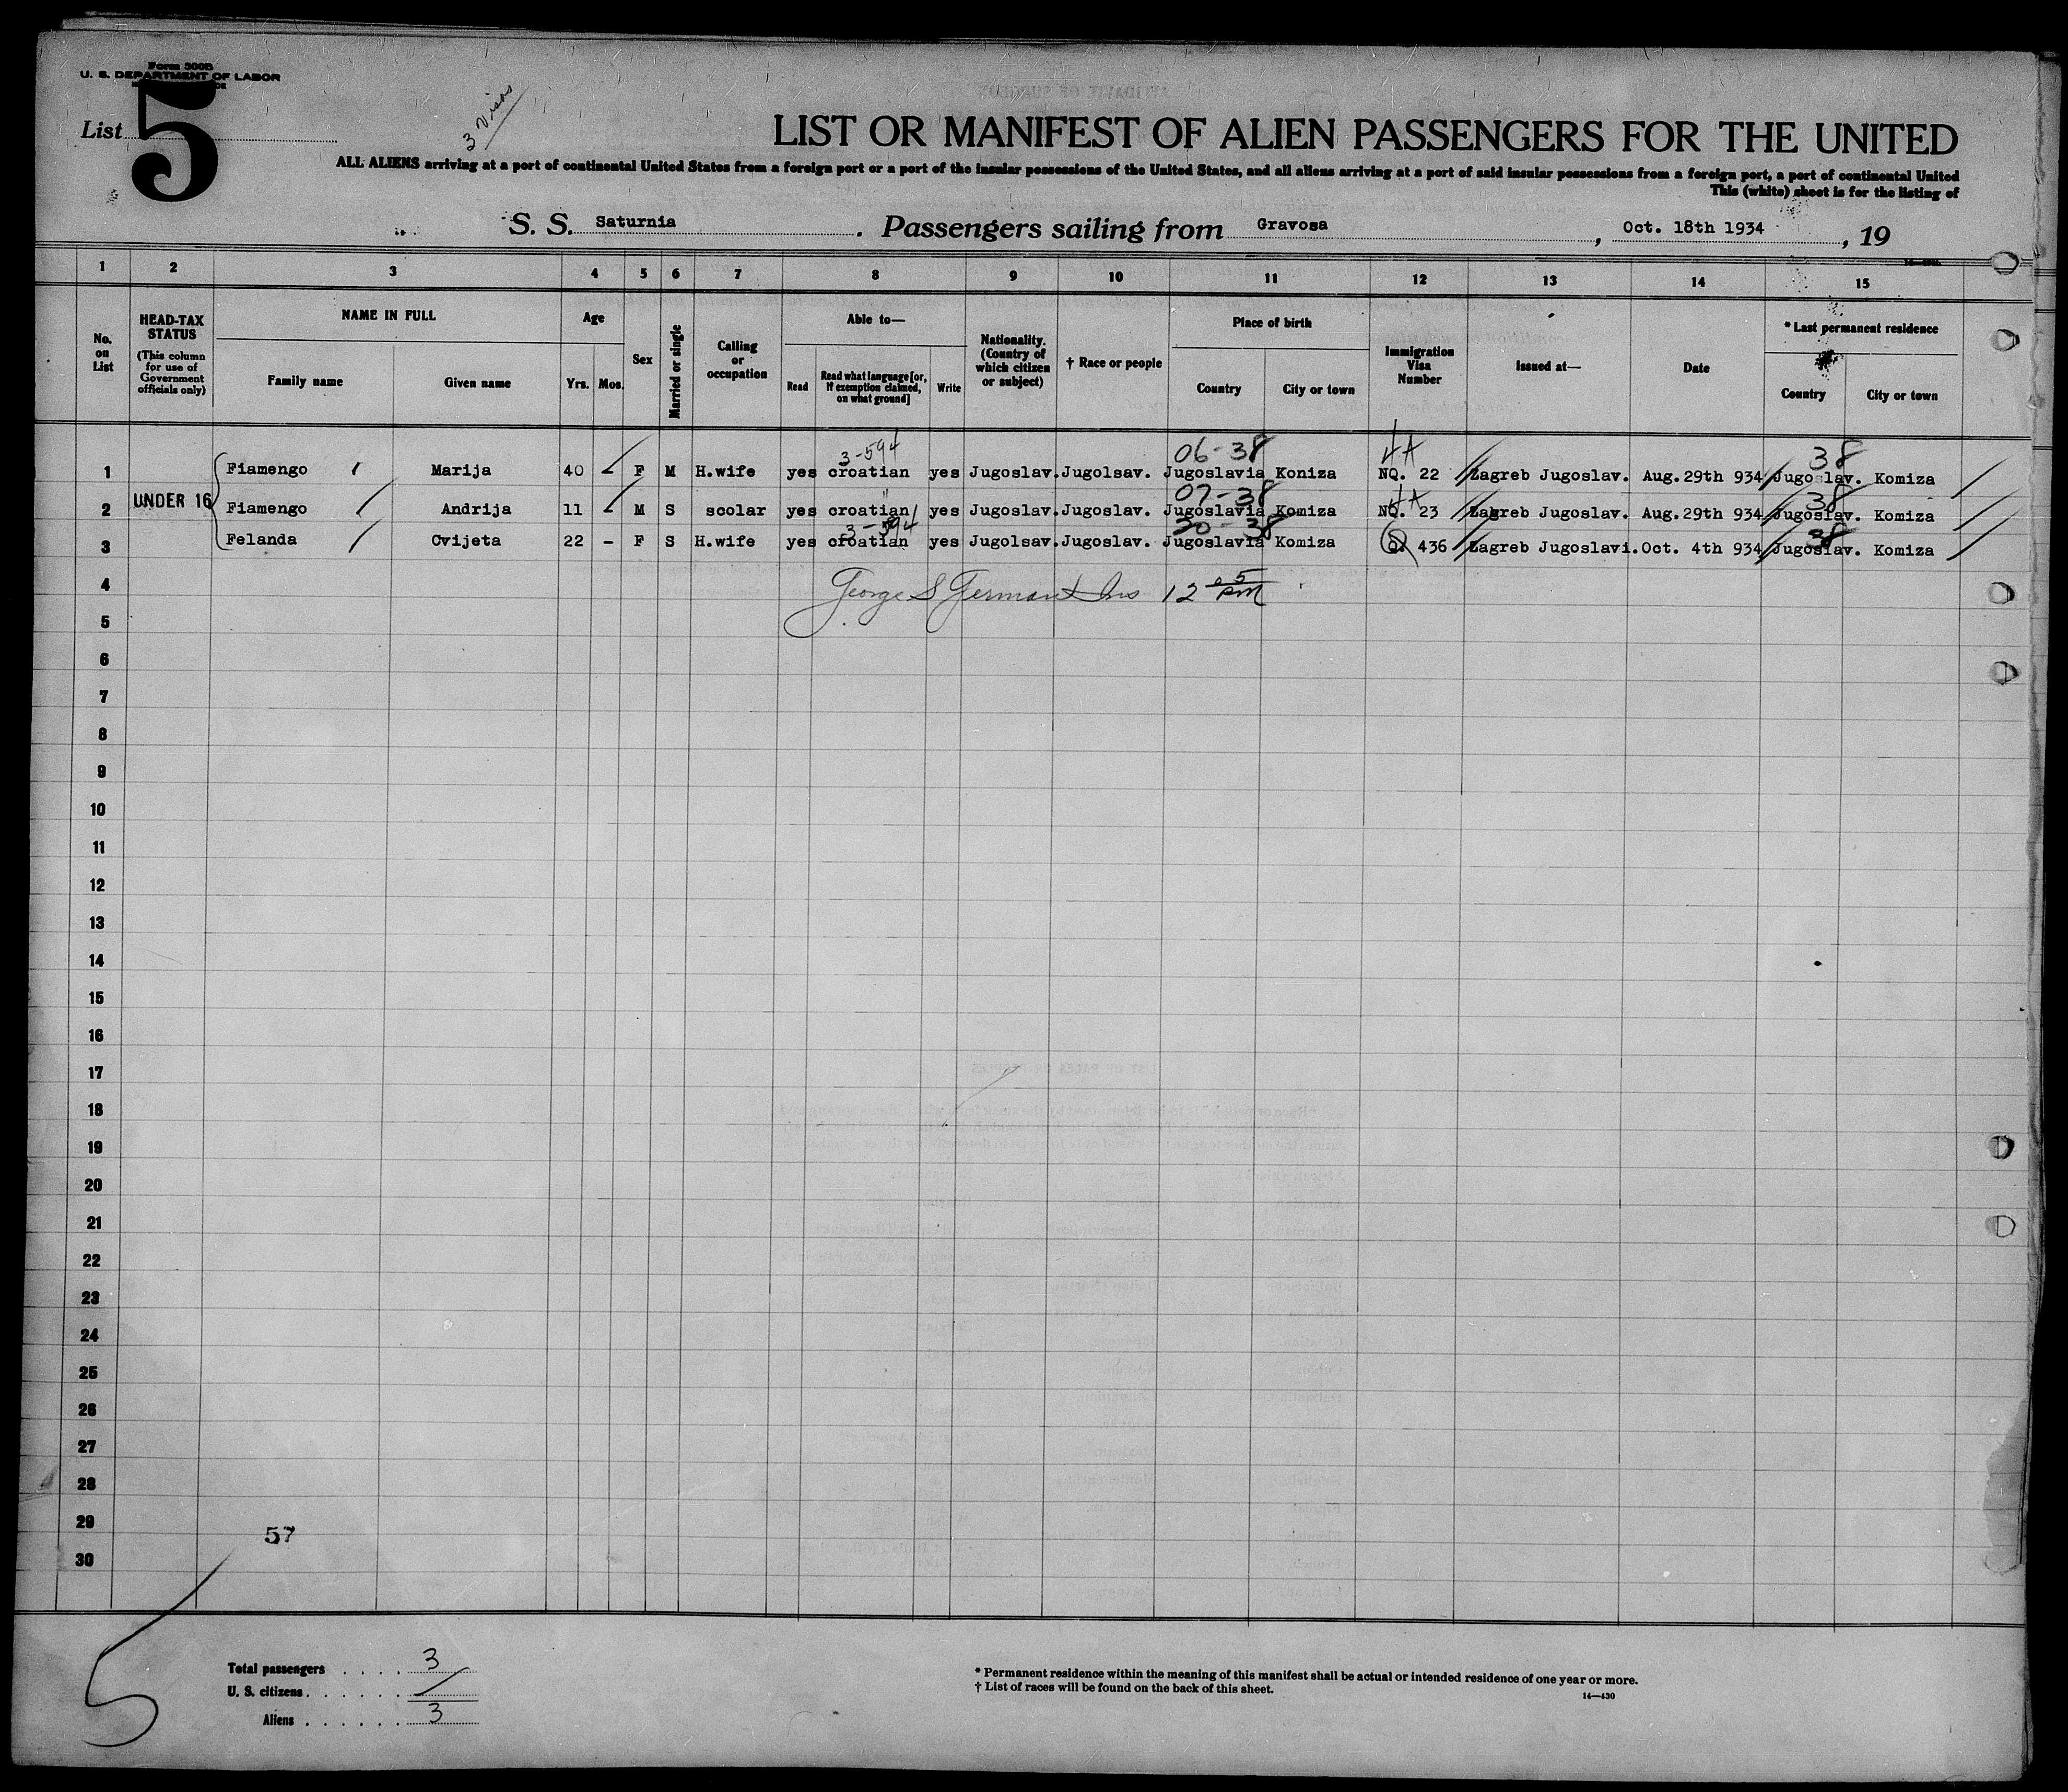 Form 500B
U. S. DEPARTMENT OF LABOR
List 5
3 Visas
LIST OR MANIFEST OF ALIEN PASSENGERS FOR THE UNITED
ALL ALIENS arriving at a port of continental United States from a foreign port or a port of the insular possessions of the United States, and all aliens arriving at a port of said insular possessions from a foreign port, a port of continental United
This (white) sheet is for the listing of
S. S. Saturnia. Passengers sailing from Gravosa, Oct. 18th 1934, 19
1 2 3 4 5 6 7 8 9 10 11 12 13 14 15
No. on List
HEAD-TAX STATUS (This column for use of Government officials only)
NAME IN FULL
Family name
Given name
Age
Yrs. Mos.
Sex
Married or single
Calling or occupation
Able to—
Read
Read what language [or, if exemption claimed, on what ground]
Write
Nationality. (Country of which citizen or subject)
† Race or people
Place of birth
Country
City or town
Immigration Visa Number
Issued at—
Date
* Last permanent residence
Country
City or town
3-594 06-38 4A 38
1 Fiamengo Marija 40 - F M H.wife yes croatian yes Jugoslav. Jugolsav. Jugoslavia Koniza NQ. 22 Zagreb Jugoslav. Aug.29th 934 Jugoslav. Komiza
07-38 4A 38
2 UNDER 16 Fiamengo Andrija 11 - M S scolar yes croatian yes Jugoslav. Jugoslav. Jugoslavia Komiza NQ. 23 Zagreb Jugoslav. Aug.29th 934 Jugoslav. Komiza
3-594 30-38 38
3 Felanda Cvijeta 22 - F S H.wife yes croatian yes Jugolsav. Jugoslav. Jugoslavia Komiza 436 Zagreb Jugoslavi. Oct. 4th 934 Jugoslav. Komiza
4 George S German Ins 12 05 PM
5
6
7
8
9
10
11
12
13
14
15
16
17
18
19
20
21
22
23
24
25
26
27
28
29
57
30
5
Total passengers . . . . 3
U. S. citizens . . . . . .
Aliens . . . . . . 3
* Permanent residence within the meaning of this manifest shall be actual or intended residence of one year or more.
† List of races will be found on the back of this sheet.
14—430